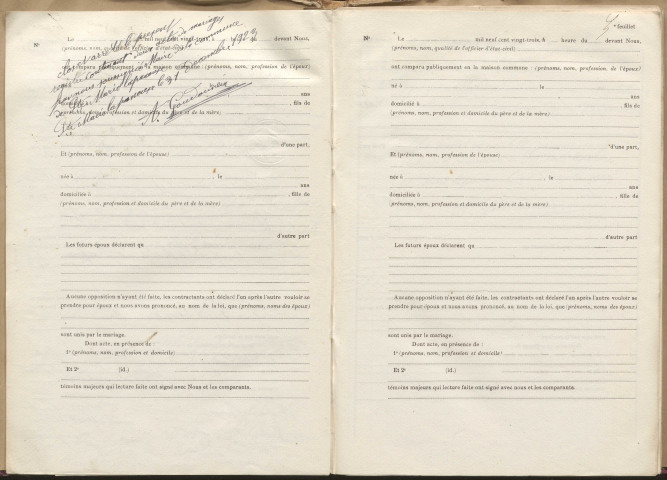 Nº Le mil neuf cent vingt-trois, à heure du devant Nous,
(prénoms, nom, qualité de l'officier d'état civil)
ont comparu publiquement en la maison commune : (prénoms, nom, profession de l'époux)
clos et arrêté le présent
registre contenant actes de mariage
par nous soussigné Maire de la commune
de Ste Marie Lapanouze
Ste Marie Lapanouze le 31 décembre 1923
né à le
une
domicilié à , fils de
(prénoms, nom, profession et domicile du père et de la mère)
d'une part,
Et (prénoms, nom, profession de l'épouse)
née à le
une
domiciliée à , fille de
(prénoms, nom, profession et domicile du père et de la mère)
d'autre part
Les futurs époux déclarent qu
Aucune opposition n'ayant été faite, les contractants ont déclaré l'un après l'autre vouloir se
prendre pour époux et nous avons prononcé, au nom de la loi, que (prénoms, noms des époux)
sont unis par le mariage.
Dont acte, en présence de :
1º (prénoms, nom, profession et domicile)
Et 2º (id.)
témoins majeurs qui lecture faite ont signé avec Nous et les comparants.
feuillet
Nº Le mil neuf cent vingt-trois, à heure du devant Nous,
(prénoms, nom, qualité de l'officier d'état civil)
ont comparu publiquement en la maison commune : (prénoms, nom, profession de l'époux)
né à le
une
domicilié à , fils de
(prénoms, nom, profession et domicile du père et de la mère)
d'une part,
Et (prénoms, nom, profession de l'épouse)
née à le
une
domiciliée à , fille de
(prénoms, nom, profession et domicile du père et de la mère)
d'autre part
Les futurs époux déclarent qu
Aucune opposition n'ayant été faite, les contractants ont déclaré l'un après l'autre vouloir se
prendre pour époux et nous avons prononcé, au nom de la loi, que (prénoms, noms des époux)
sont unis par le mariage.
Dont acte, en présence de :
1º (prénoms, nom, profession et domicile)
Et 2º (id.)
témoins majeurs qui lecture faite ont signé avec Nous et les comparants.